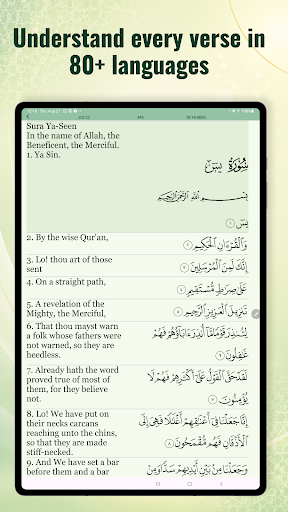 Understand every verse in
80+ languages
JUZ 22
#440
36 YA-SEEN
Sura Ya-Seen
In the name of Allah, the
Beneficent, the Merciful.
1. Ya Sin.
سُورَةُ يسٓ
بِسْمِ اللَّهِ الرَّحْمَٰنِ الرَّحِيمِ
يسٓ ۝١
2. By the wise Qur'an,
وَالْقُرْءَانِ الْحَكِيمِ ۝٢
3. Lo! thou art of those
sent
إِنَّكَ لَمِنَ الْمُرْسَلِينَ ۝٣
4. On a straight path,
عَلَىٰ صِرَٰطٍ مُّسْتَقِيمٍ ۝٤
5. A revelation of the
Mighty, the Merciful,
تَنزِيلَ الْعَزِيزِ الرَّحِيمِ ۝٥
6. That thou mayst warn
a folk whose fathers were
not warned, so they are
heedless.
لِتُنذِرَ قَوْمًا مَّآ أُنذِرَ ءَابَآؤُهُمْ فَهُمْ
غَٰفِلُونَ ۝٦
7. Already hath the word
proved true of most of
them, for they believe
not.
لَقَدْ حَقَّ الْقَوْلُ عَلَىٰٓ أَكْثَرِهِمْ فَهُمْ لَا
يُؤْمِنُونَ ۝٧
8. Lo! We have put on
their necks carcans
reaching unto the chins,
so that they are made
stiff-necked.
إِنَّا جَعَلْنَا فِىٓ أَعْنَٰقِهِمْ أَغْلَٰلًا فَهِىَ إِلَى
الْأَذْقَانِ فَهُم مُّقْمَحُونَ ۝٨
9. And We have set a bar
before them and a bar
وَجَعَلْنَا مِنۢ بَيْنِ أَيْدِيهِمْ سَدًّا وَمِنْ